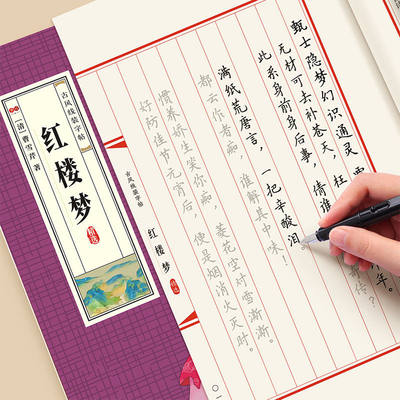 古风线装字帖
【清】曹雪芹 著
红楼梦
精选
甄士隐梦幻识通灵
无材可去补苍天，枉
年。
此系身前身后事，倩
传？
满纸荒唐言，一把辛酸泪
都云作者痴，谁解其中味！
惯养娇生笑你痴，菱花空对雪澌澌。
好防佳节元宵后，便是烟消火灭时。
古风线装字帖
红楼梦
精选
〇一